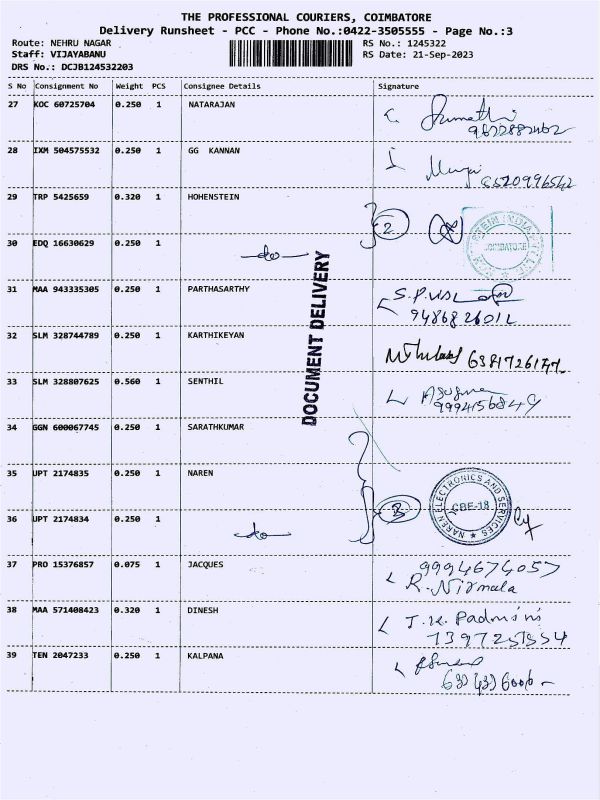 THE PROFESSIONAL COURIERS, COIMBATORE
Delivery Runsheet - PCC - Phone No.:0422-3505555 - Page No.:3
Route: NEHRU NAGAR
Staff: VIJAYABANU
DRS No.: DCJB124532203
RS No.: 1245322
RS Date: 21-Sep-2023
S No Consignment No Weight PCS Consignee Details Signature
27 KOC 60725704 0.250 1 NATARAJAN
28 IXM 504575532 0.250 1 GG KANNAN
8520996542
29 TRP 5425659 0.320 1 HOHENSTEIN
2
COIMBATORE
30 EDQ 16630629 0.250 1 -do-
DOCUMENT DELIVERY
31 MAA 943335305 0.250 1 PARTHASARTHY
32 SLM 328744789 0.250 1 KARTHIKEYAN
33 SLM 328807625 0.560 1 SENTHIL
34 GGN 600067745 0.250 1 SARATHKUMAR
35 UPT 2174835 0.250 1 NAREN
3
NAREN ELECTRONICS AND SERVICES
CBE-18
36 UPT 2174834 0.250 1 -do-
37 PRO 15376857 0.075 1 JACQUES
9994674057
R. Nirmala
38 MAA 571408423 0.320 1 DINESH
J.K. Padmini
39 TEN 2047233 0.250 1 KALPANA